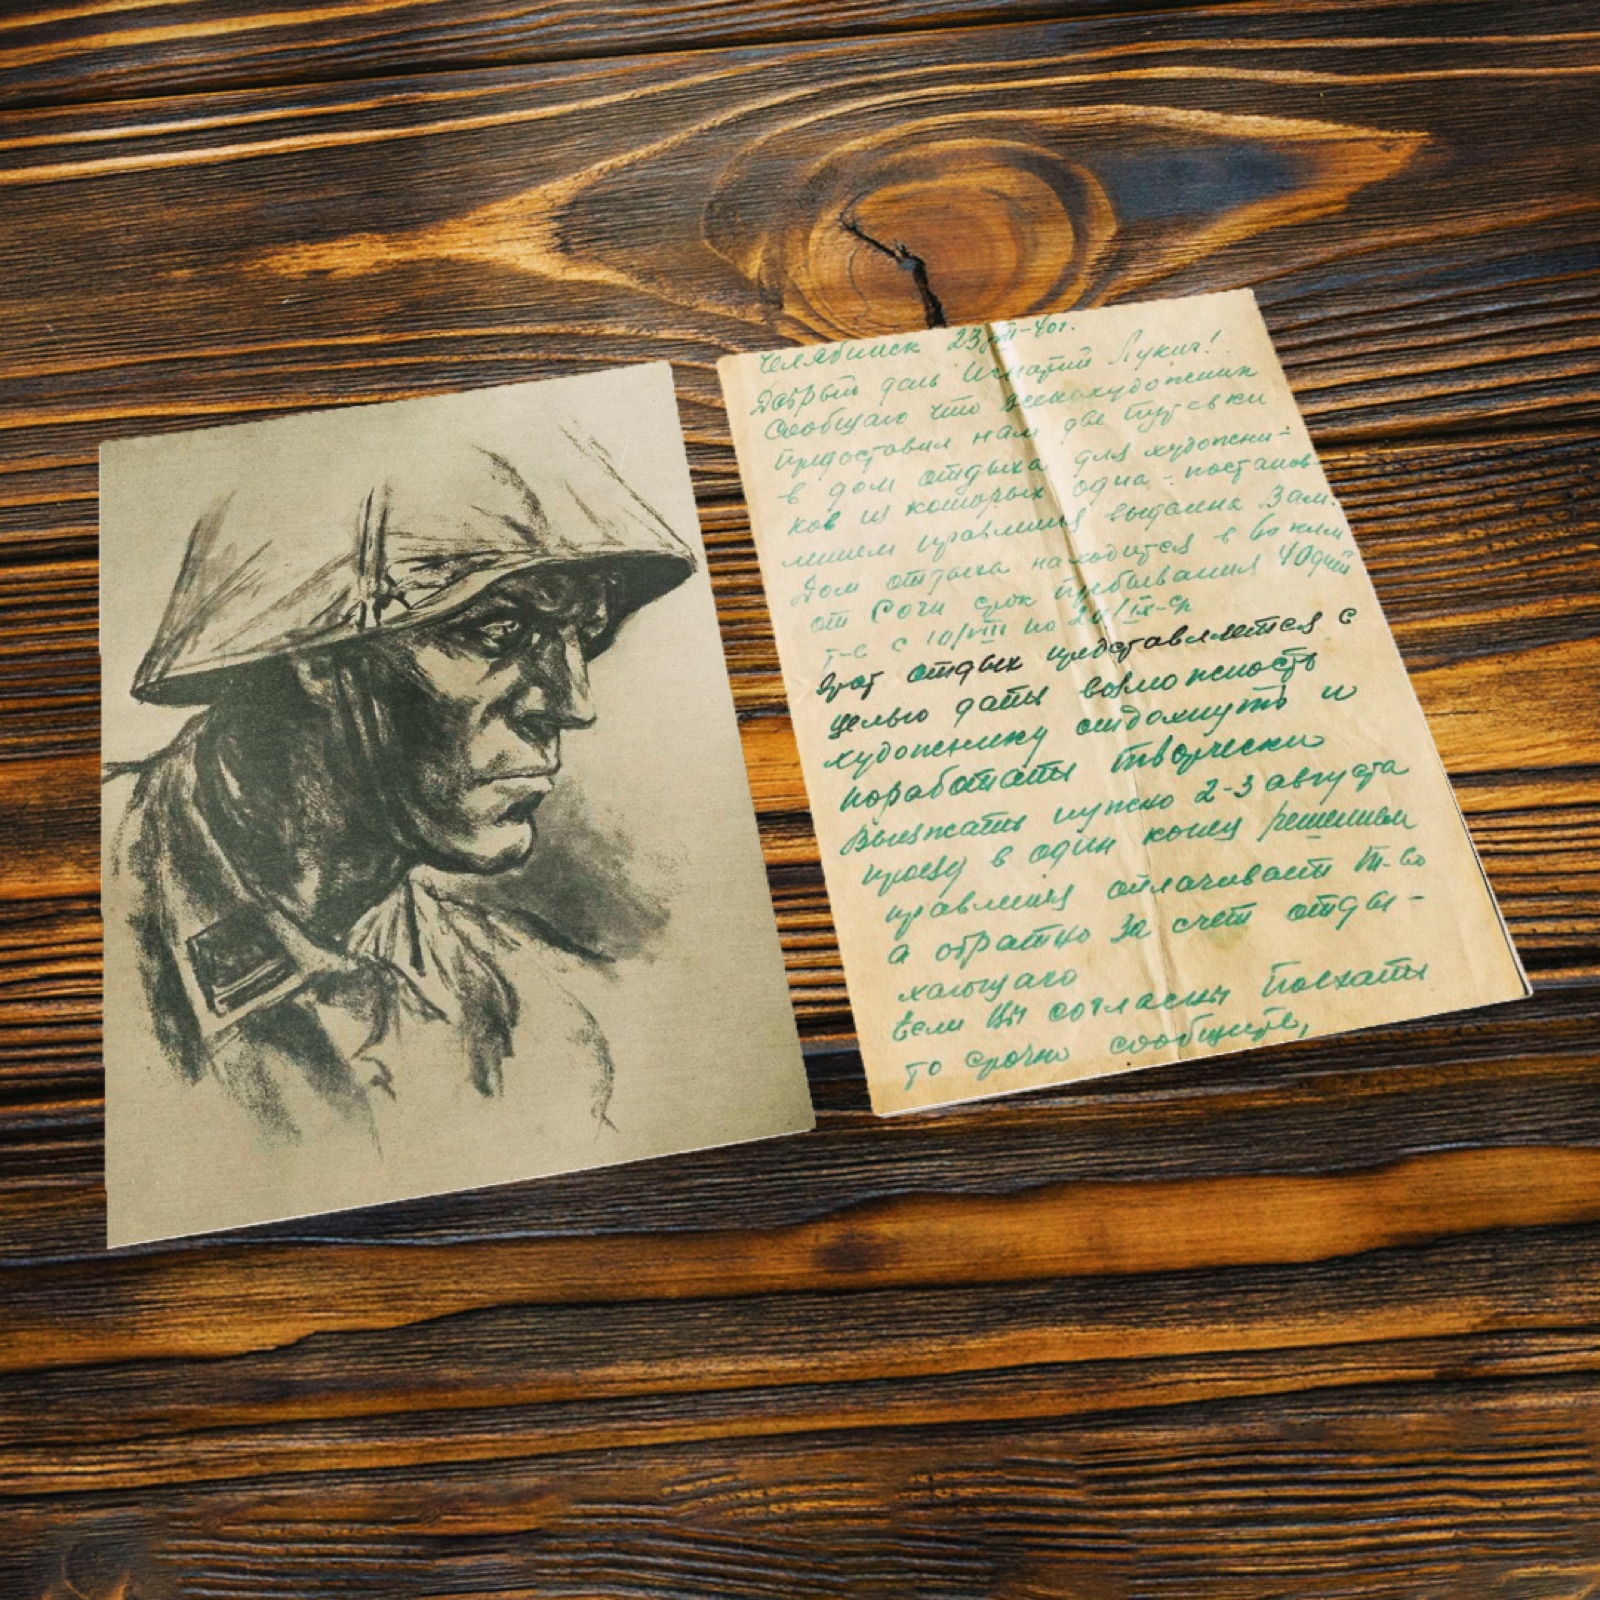 Челябинск 23/VII-40г.
Добрый день Игнатий Лукич!
Сообщаю что всекохудожник
предоставил нам две путевки
в дом отдыха для художни-
ков из которых одна - постанов-
лением правления выданна Вам.
Дом отдыха находится в 60 клм
от Сочи срок пребывания 40 дней
т-е с 10/VIII по 20/IX-с/г
Этот отдых представляется с
целью дать возможность
художнику отдохнуть и
поработать творчески
Выезжать нужно 2-3 августа
проезд в один конец решением
правления оплачивает т-во
а обратно за счет отды-
хающаго
Если Вы согласны поехать
то срочно сообщите,